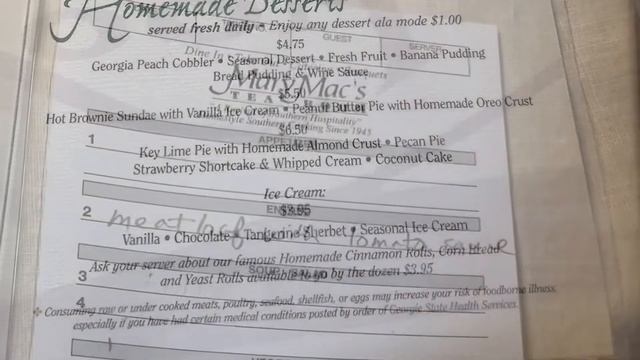 Homemade Desserts
served fresh daily • Enjoy any dessert ala mode $1.00
GUEST
SERVER
$4.75
Dine In
Georgia Peach Cobbler • Seasonal Dessert • Fresh Fruit • Banana Pudding
Bread Pudding & Wine Sauce
Mary Mac's
TEA
$5.50
Hot Brownie Sundae with Vanilla Ice Cream • Peanut Butter Pie with Homemade Oreo Crust
Southern Hospitality"
Since 1945
$6.50
1
Key Lime Pie with Homemade Almond Crust • Pecan Pie
Strawberry Shortcake & Whipped Cream • Coconut Cake
Ice Cream:
$3.95
2
meatloaf tomato
Vanilla • Chocolate • Tangerine Sherbet • Seasonal Ice Cream
Ask your server about our famous Homemade Cinnamon Rolls, Corn Bread
3
and Yeast Rolls available to go by the dozen $3.95
SOUP
4
Consuming raw or under cooked meats, poultry, seafood, shellfish, or eggs may increase your risk of foodborne illness,
especially if you have had certain medical conditions posted by order of Georgia State Health Services.